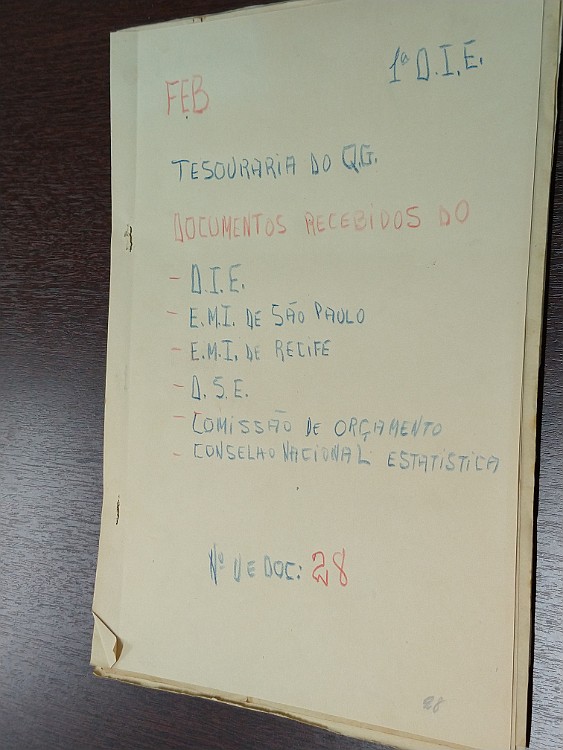 1ª D.I.E.
FEB
TESOURARIA DO Q.G.
DOCUMENTOS RECEBIDOS DO
- D.I.E.
- E.M.I. DE SÃO PAULO
- E.M.I. DE RECIFE
- D.S.E.
- COMISSÃO DE ORÇAMENTO
- CONSELHO NACIONAL ESTATÍSTICA
Nº DE DOC: 28
28